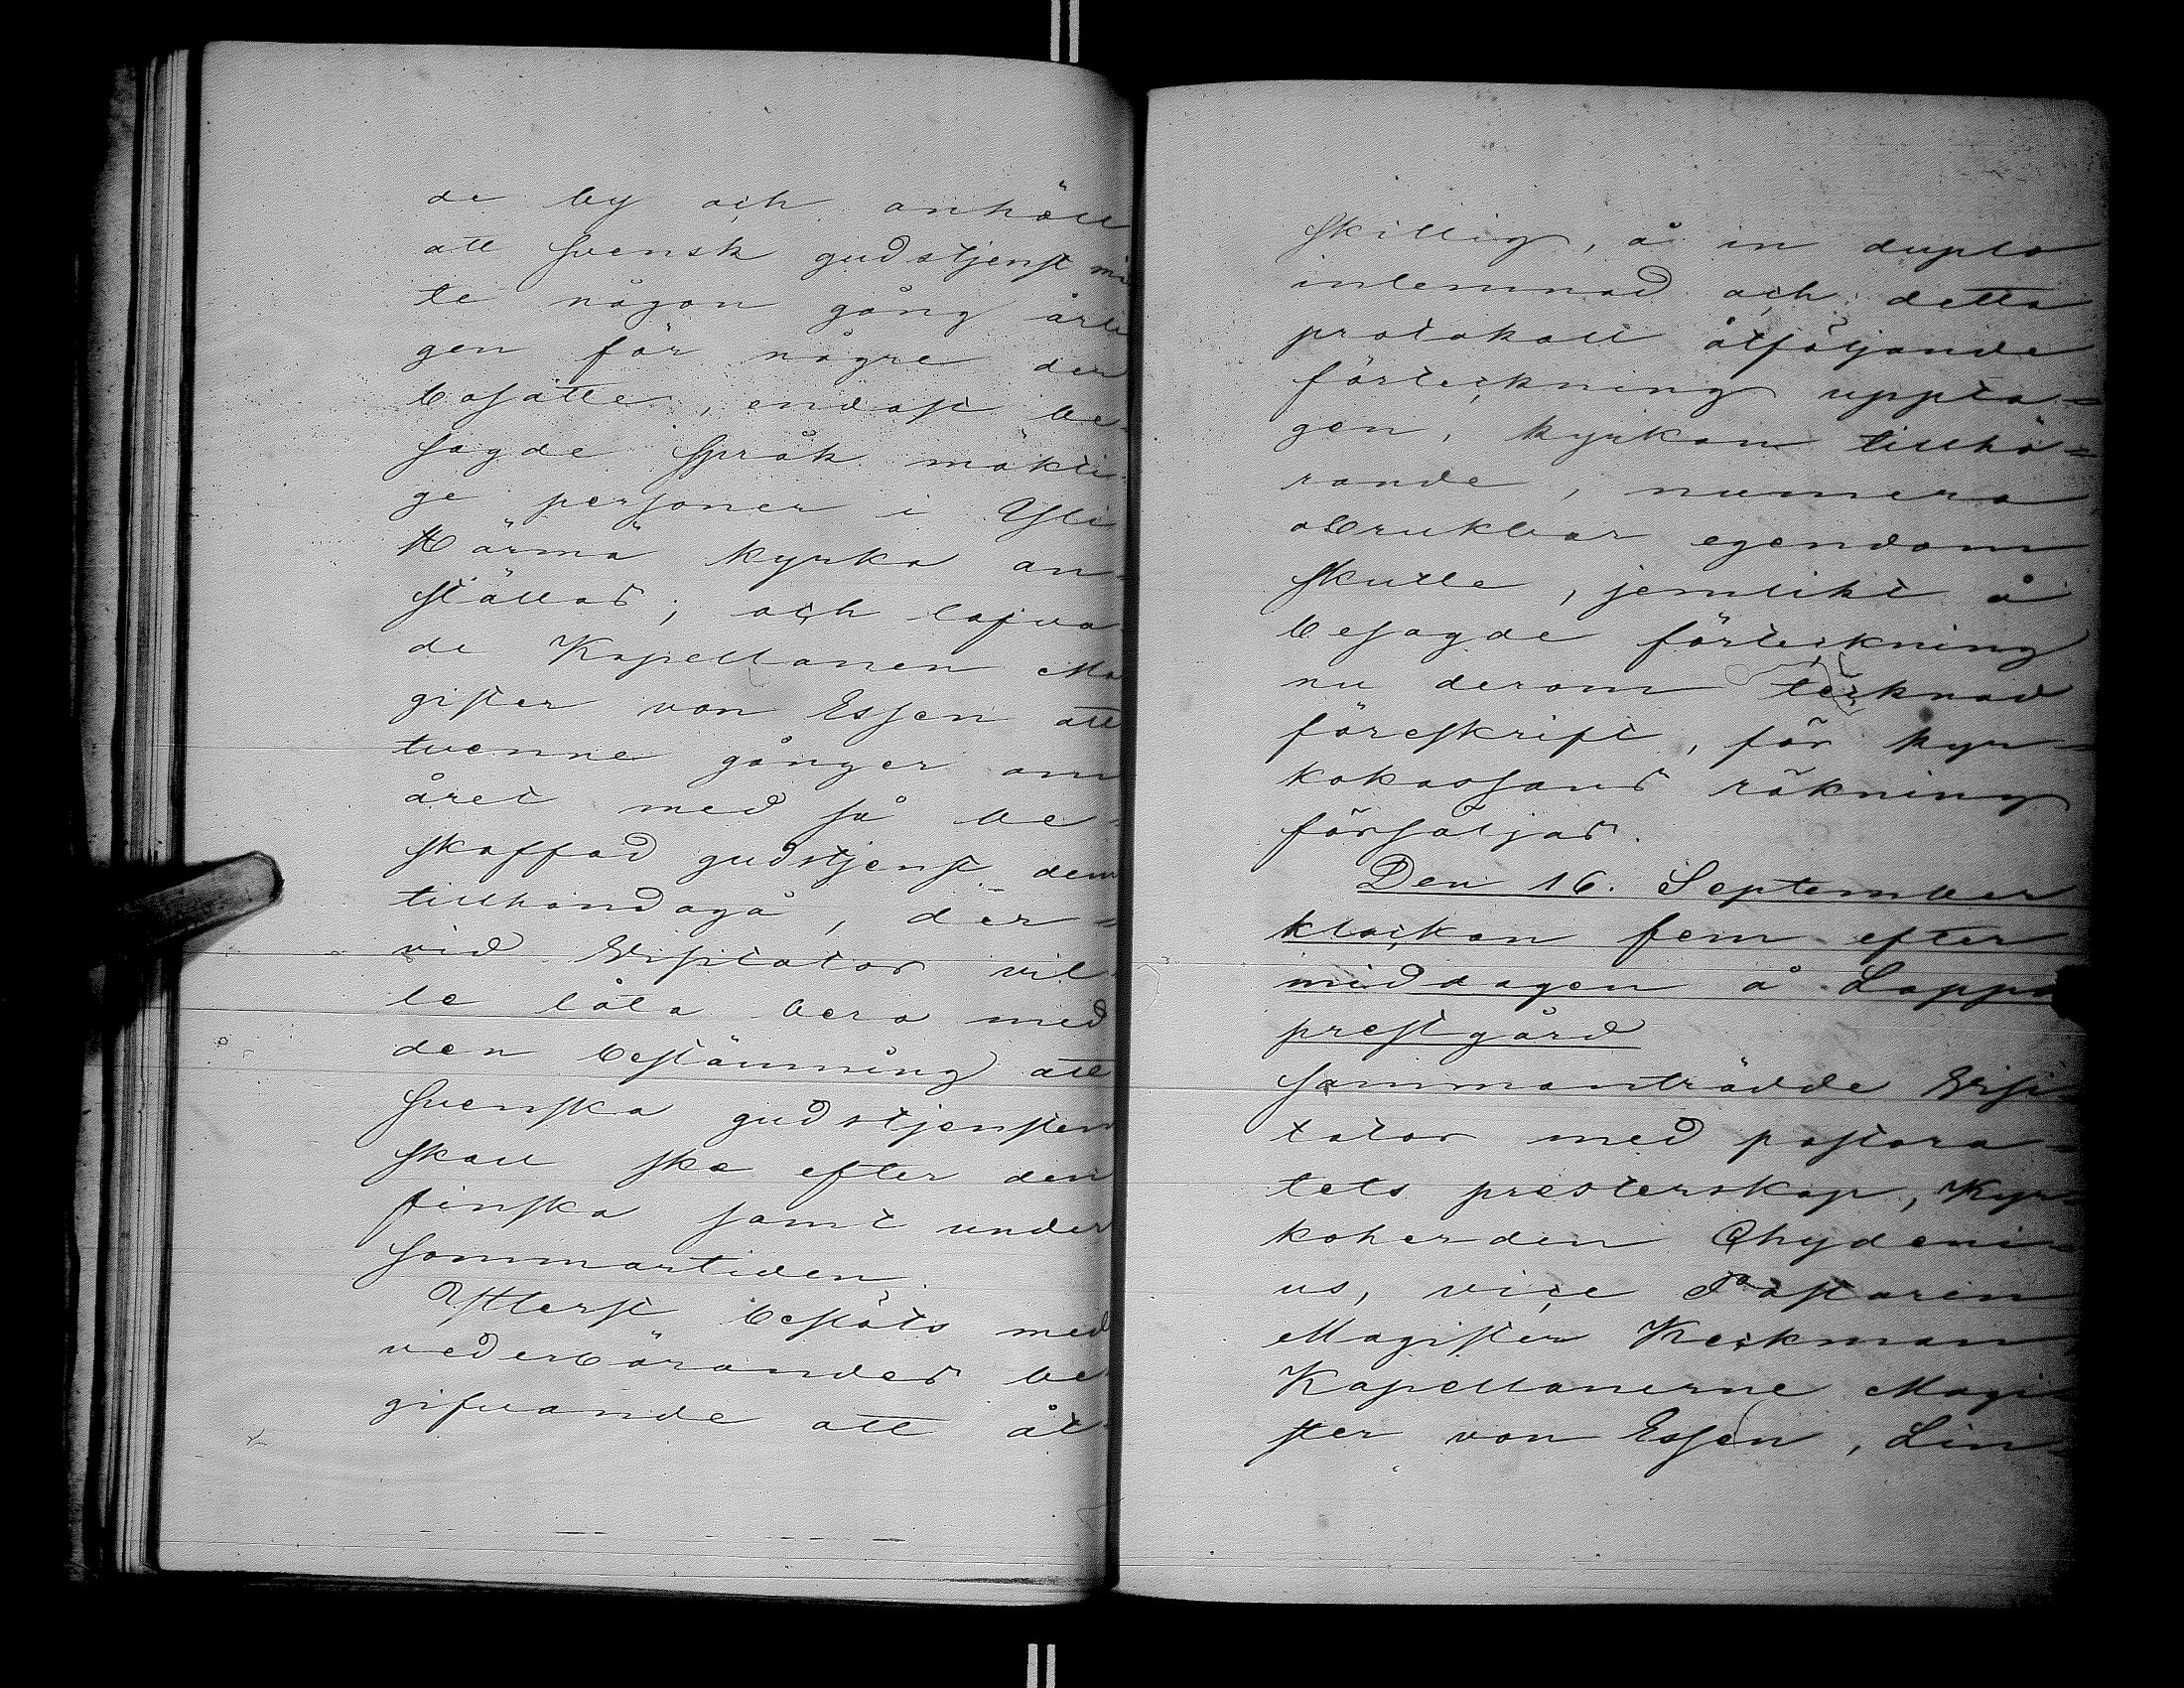 de by och anhöll
att svensk gudstjenst må
te någon gång årli
gen för någre der
bosatte, endast be-
sagde språk mäkti-
ge personer i Yli
Härmä kyrka an-
ställas; och lofva-
de Kapellanen Ma
gister von Essen att
tvenne gånger om
året med så be-
skaffad gudstjenst dem
tillhandagå, der-
vid Visitator vil-
le låta bero med
den bestämning att
svenska gudstjensten
skall ske efter den
finska samt under
sommartiden.
Ytterst beslöts med
vederbörandes be-
gifvande att åt-
skillig, å in duplo
inlemnad och detta
protokoll åtföljande
förteckning uppta-
gen, kyrkan tillhö-
rande, numera
obrukbar egendom
skulle, jemlikt å
besagde förteckning
nu derom tecknad
föreskrift, för kyr-
kokassans räkning
försäljas.
Den 16. September
klockan fem efter
middagen å Lappo
prestgård
sammanträdde Visi-
tator med pastora-
tets presterskap, Kyr-
koherden Chydeni-
us, vice Pastorn
Magister Keckman,
Kapellanerne Magi-
ster von Essen, Lin-